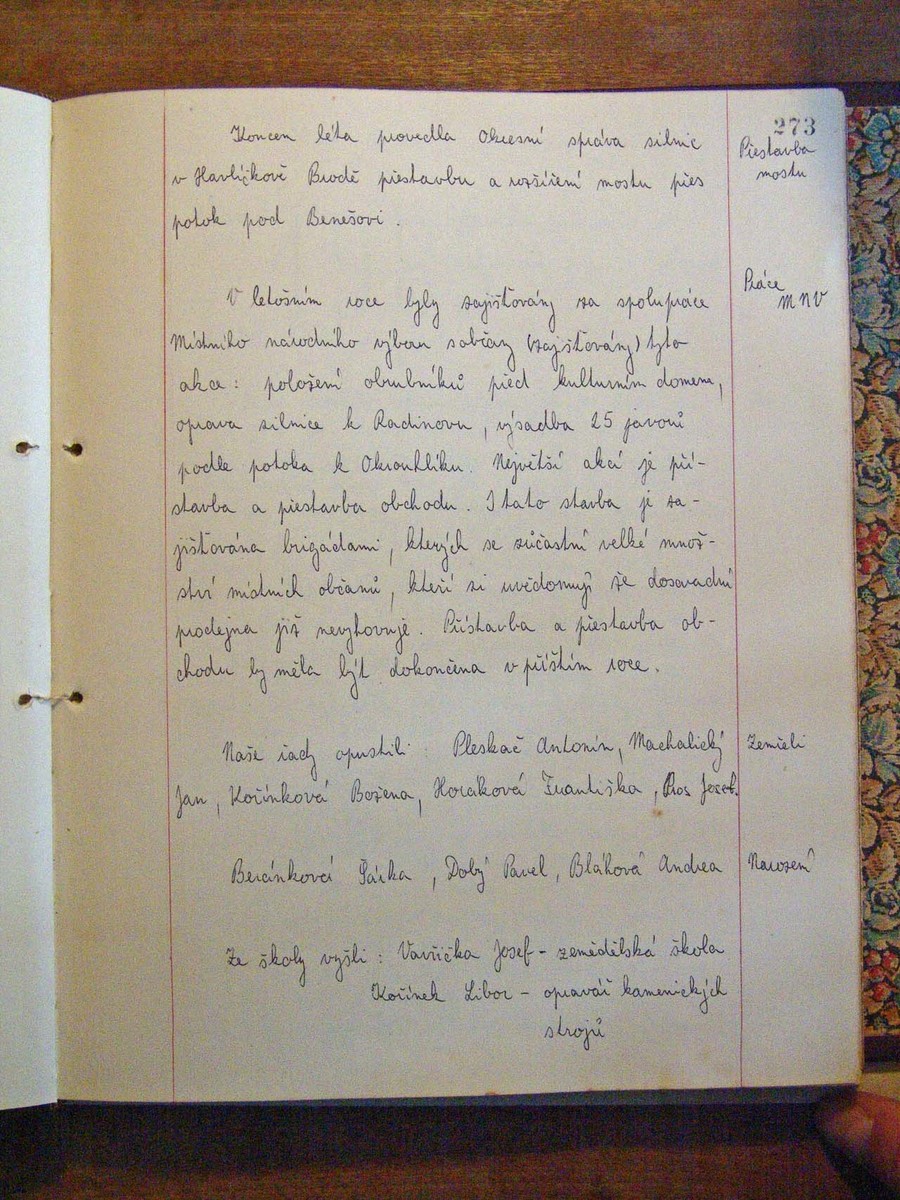 273
Koncem léta provedla Okresní správa silnic
v Havlíčkově Brodě přestavbu a rozšíření mostu přes
potok pod Benešovi.
Přestavba
mostu
V letošním roce byly zajišťovány za spolupráce
Místního národního výboru s občany (zajišťovány) tyto
akce: položení obrubníků před kulturním domem,
oprava silnice k Radinovu, výsadba 25 javorů
podle potoka k Okrouhlíku. Největší akcí je pří-
stavba a přestavba obchodu. I tato stavba je za-
jišťována brigádami, kterých se zúčastní velké množ-
ství místních občanů, kteří si uvědomují že dosavadní
prodejna již nevyhovuje. Přístavba a přestavba ob-
chodu by měla být dokončena v příštím roce.
Práce
MNV
Naše řady opustili: Pleskač Antonín, Machalický
Jan, Kořínková Božena, Horáková Františka, Pros Josef.
Zemřeli
Beránková Šárka, Dobý Pavel, Bláhová Andrea
Narození
Ze školy vyšli: Vavřička Josef - zemědělská škola
Kořínek Libor - opravář kamenických
strojů